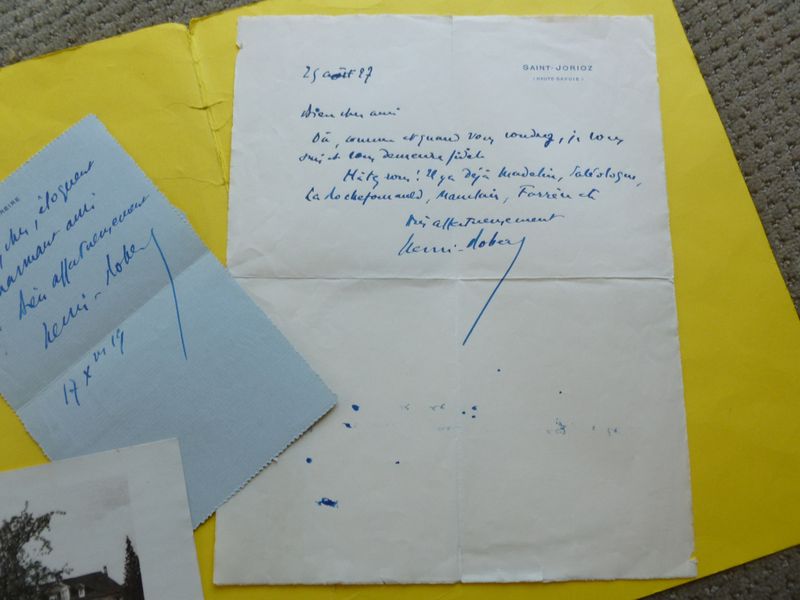 SAINT-JORIOZ
(HAUTE-SAVOIE)
25 août 27
Bien cher ami
Où, comme et quand vous voudrez, je vous
suis et vous demeure fidèle
Hâtez vous! Il y a déjà Madelin, Paléologue,
La Rochefoucauld, Mauclair, Farrère etc
Très affectueusement
Henri-Robert
cher, éloquent
charmant ami
Bien affectueusement
Henri-Robert
17 X 19